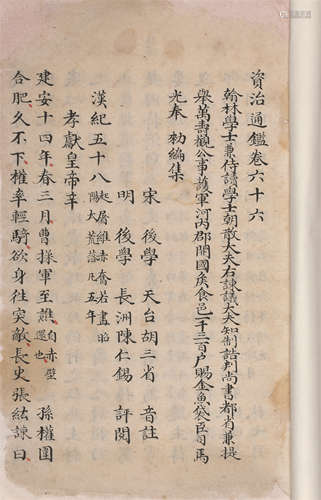 資治通鑑卷六十六
翰林學士兼侍讀學士朝散大夫右諫議大夫知制誥判尚書都省兼提
舉萬壽觀公事護軍河內郡開國侯食邑一千三百户賜金魚袋臣司馬
光奉 勅編集
宋 後學 天台胡三省 音註
明 後學 長洲陳仁錫 評閱
漢紀五十八 起屠維赤奮若盡昭
陽大荒落凡五年
孝獻皇帝辛
建安十四年春三月曹操軍至譙 自赤壁
還也 孫權圍
合肥久不下權率輕騎欲身往突敵長史張紘諫曰